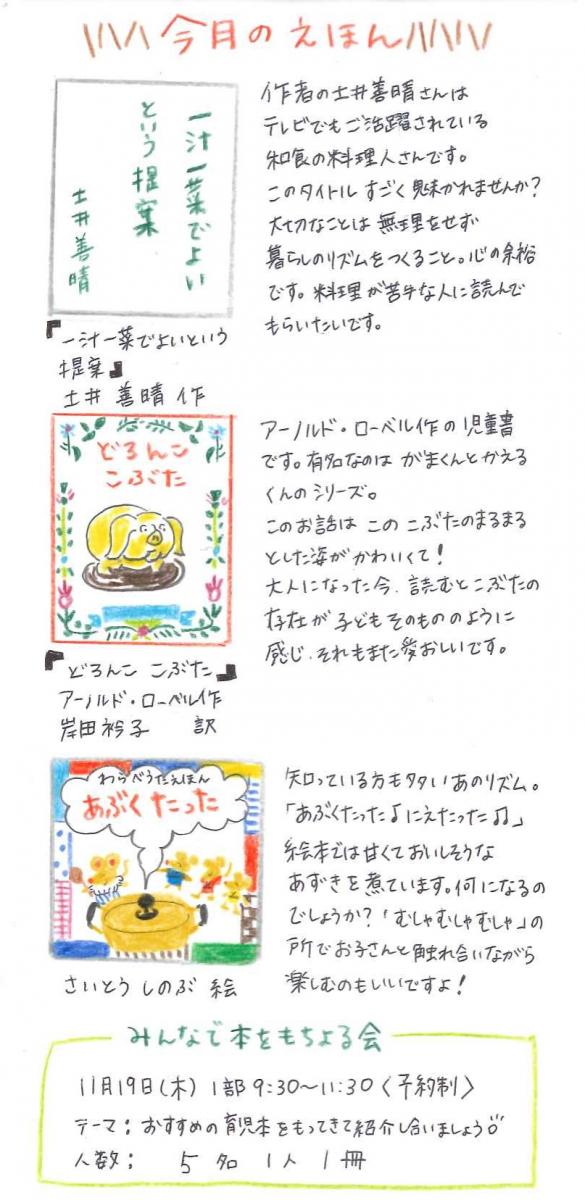 今月のえほん
一汁一菜でよい
という提案
土井善晴
『一汁一菜でよいという
提案』
土井 善晴 作
作者の土井善晴さんは
テレビでもご活躍されている
和食の料理人さんです。
このタイトル すごく魅かれませんか?
大切なことは 無理をせず
暮らしのリズムをつくること。心の余裕
です。料理が苦手な人に読んで
もらいたいです。
どろんこ
こぶた
『どろんこ こぶた』
アーノルド・ローベル作
岸田衿子 訳
アーノルド・ローベル作の児童書
です。有名なのは がまくんとかえる
くんのシリーズ。
このお話は この こぶたのまるまる
とした姿がかわいくて!
大人になった今、読むとこぶたの
存在が子どもそのもののように
感じ、それもまた愛おしいです。
わらべうたえほん
あぶくたった
さいとう しのぶ 絵
知っている方も多いあのリズム。
「あぶくたった♪にえたった♫」
絵本では甘くておいしそうな
あずきを煮ています。何になるの
でしょうか?「むしゃむしゃむしゃ」の
所でお子さんと触れ合いながら
楽しむのもいいですよ!
みんなで本をもちよる会
11月19日(木) 1部 9:30〜11:30〈予約制〉
テーマ:おすすめの育児本をもってきて紹介し合いましょう
人数: 5名 1人 1冊